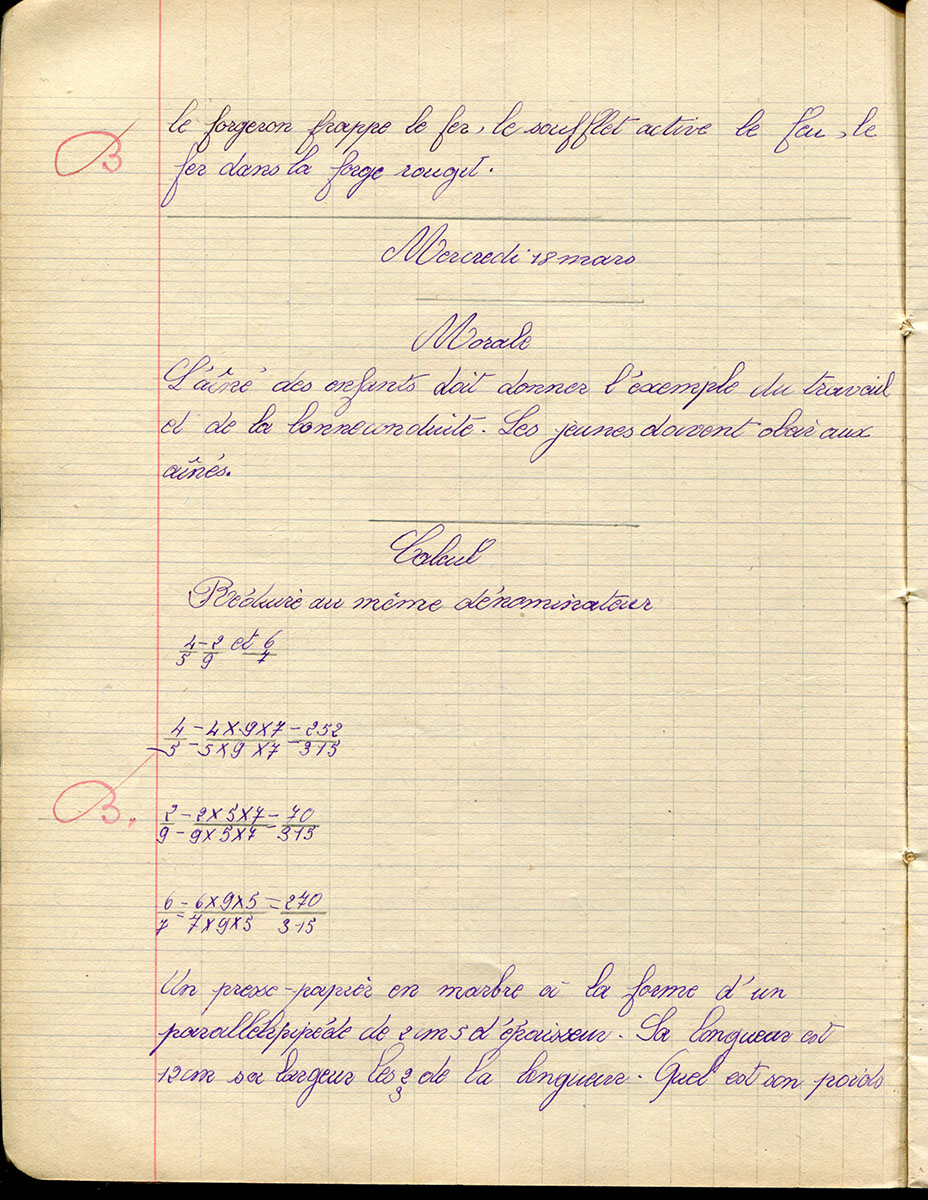 le forgeron frappe le fer, le soufflet active le feu, le
B
fer dans la forge rougit.
Mercredi 18 mars
Morale
L'aîné des enfants doit donner l'exemple du travail
et de la bonne conduite. Les jeunes doivent obéir aux
aînés.
Calcul
Réduire au même dénominateur
4/5 - 2/9 et 6/7
4/5 = 4×9×7/5×9×7 = 252/315
B.
2/9 = 2×5×7/9×5×7 = 70/315
6/7 = 6×9×5/7×9×5 = 270/315
Un presse-papier en marbre a la forme d'un
parallélépipède de 2cm5 d'épaisseur. Sa longueur est
12cm sa largeur les 2/3 de la longueur. Quel est son poids